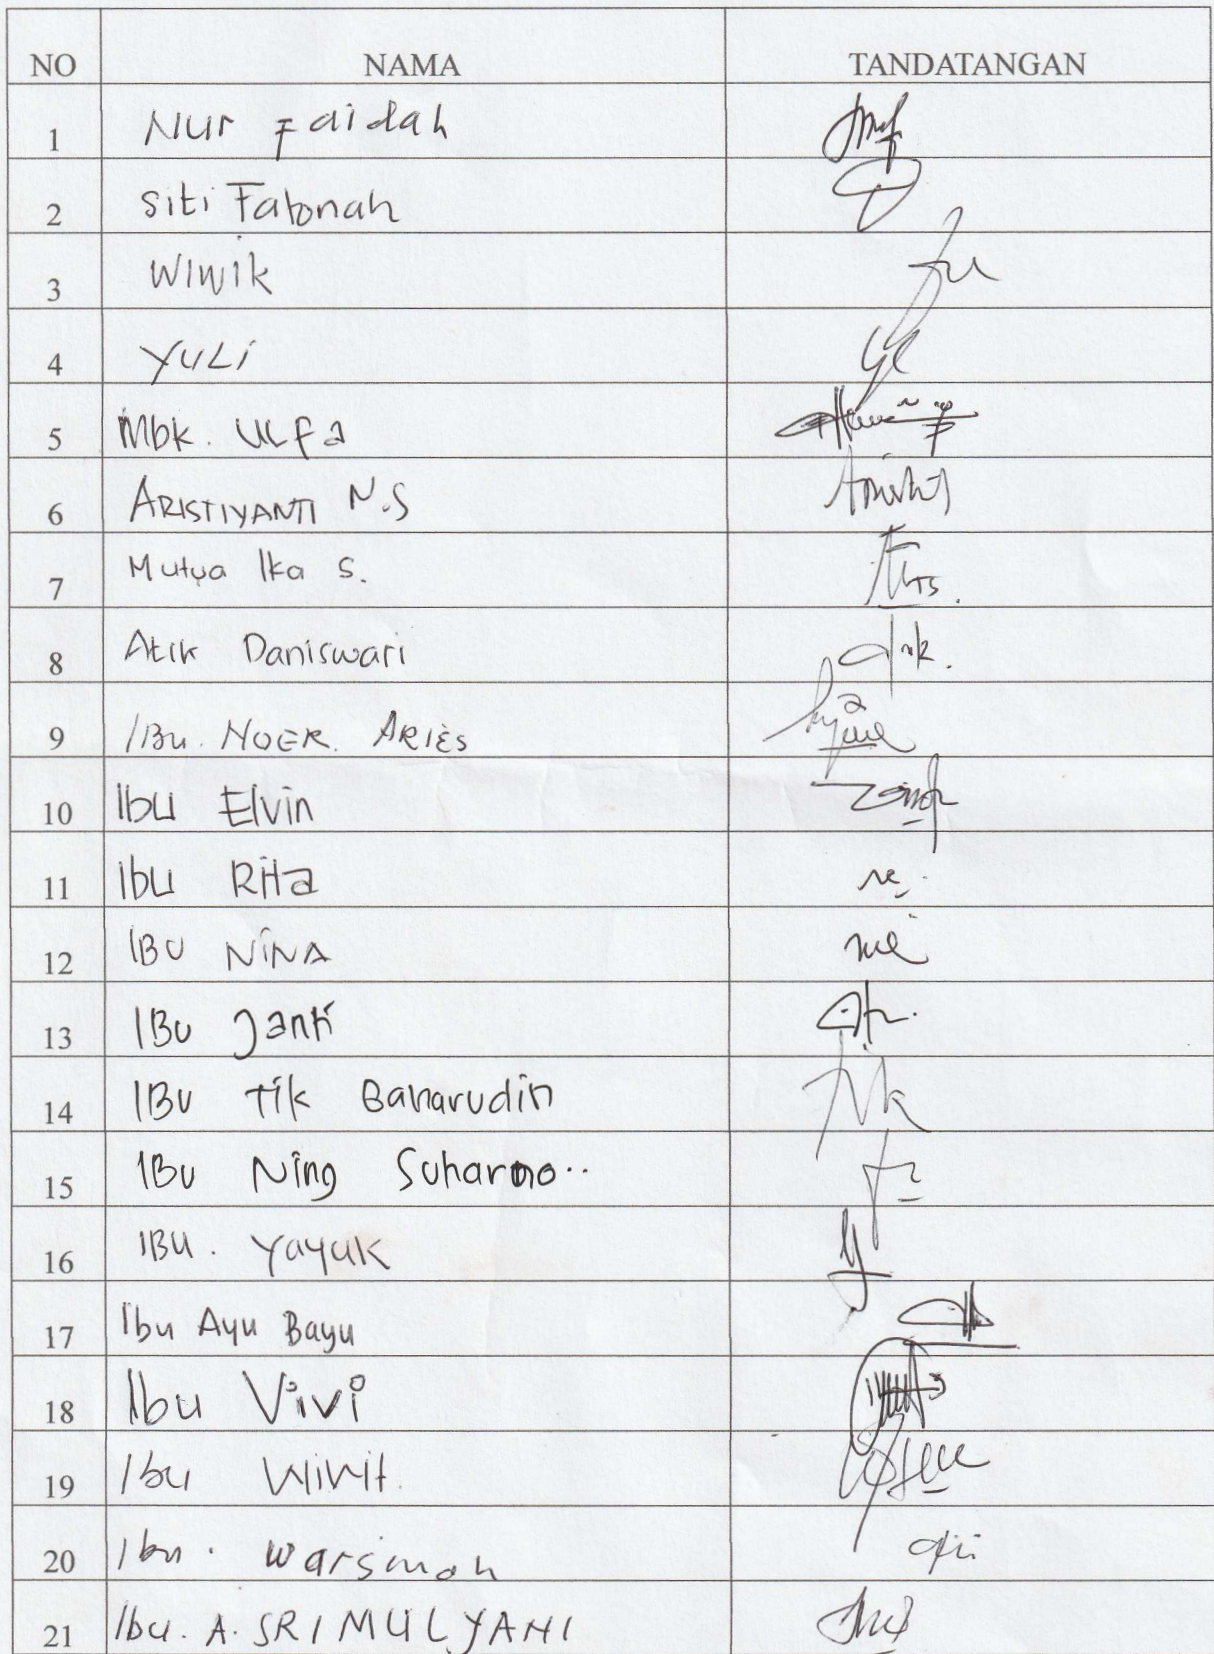 NO NAMA TANDATANGAN
1 Nur Faidah
2 Siti Fatonah
3 Wiwik
4 YULi
5 Mbk. ULFa
6 ARISTIYANTI N.S
7 Mutya Ika S.
8 Atik Daniswari
9 IBu. NOER. ARIES
10 Ibu Elvin
11 Ibu Rita
12 IBU NiNA
13 IBu Janti
14 IBu Tik Baharudin
15 IBu Ning Suharno..
16 IBU. Yayuk
17 Ibu Ayu Bayu
18 Ibu Vivi
19 Ibu Wiwit.
20 Ibu. Warsinah
21 Ibu. A. SRI MULYANI